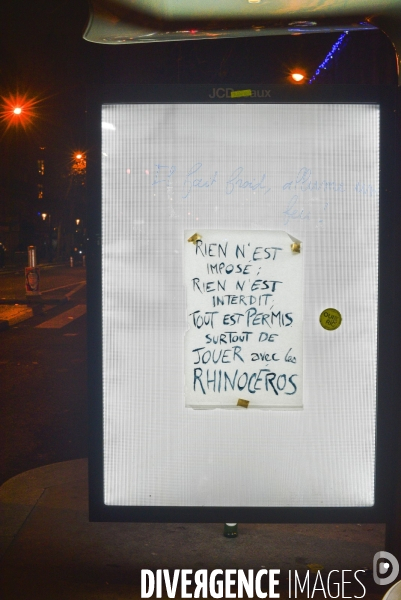 JCDecaux
Il fait froid, allume un
feu
RIEN N'EST
IMPOSÉ ;
RIEN N'EST
INTERDIT.
TOUT EST PERMIS
SURTOUT DE
JOUER avec les
RHINOCÉROS
DIVERGENCE IMAGES